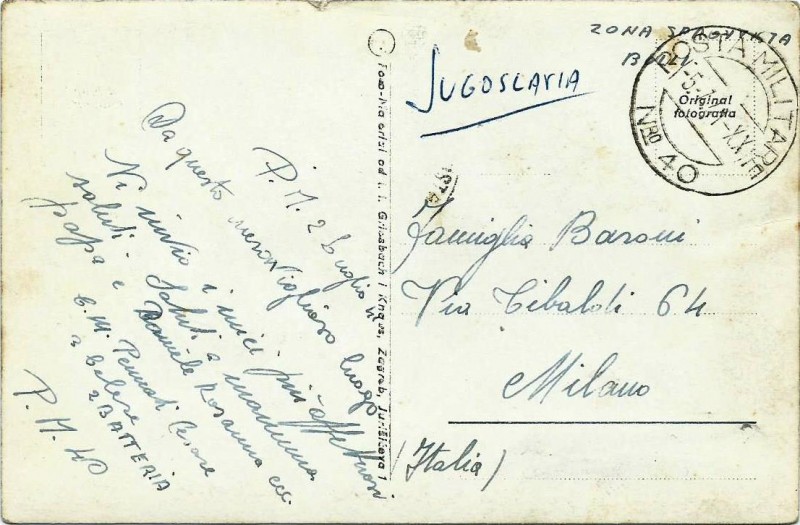 P. M. 2 Luglio
Da questo meraviglioso luogo
Vi invio i miei più affettuosi
saluti. Saluti a mamma
papa e Daniele Rosanna ecc.
C. M. Pennati Cesare
2 BATTERIA
P. M. 40
Foto-Na orisl od L. i. Griesbach i Knaus, Zagreb, Jurišićeva 1
ZONA
JUGOSLAVIA
POSTA MILITARE
NRO 40
Original
fotografia
Famiglia Baroni
Via Tibaldi 64
Milano
(Italia)